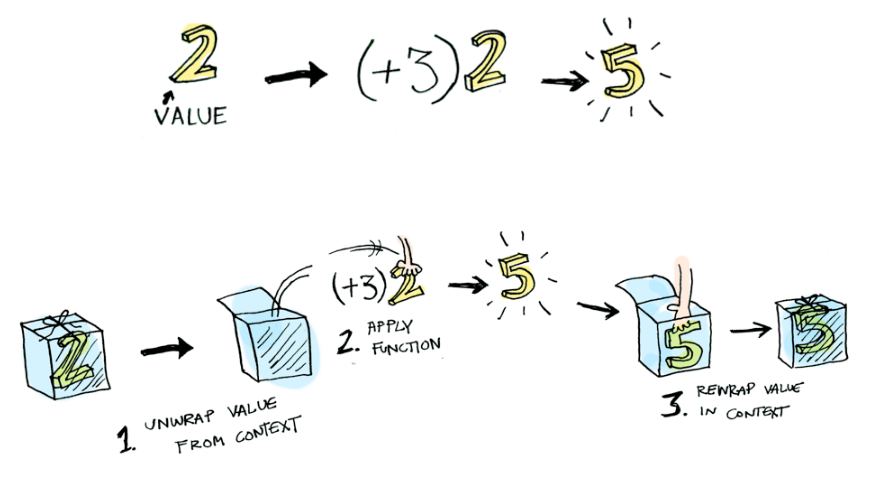 2 (+3) 2 5
VALUE
2 (+3) 2 5 5 5
1. UNWRAP VALUE
FROM CONTEXT
2. APPLY
FUNCTION
3. REWRAP VALUE
IN CONTEXT